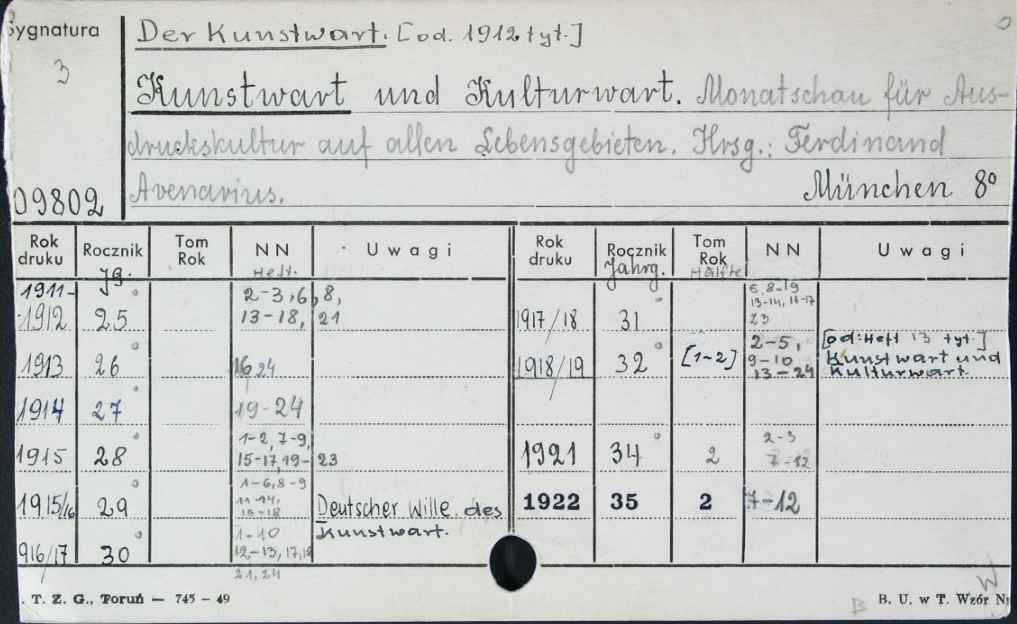 Sygnatura
3
09802
Der Kunstwart. [od. 1912 tyt.]
Kunstwart und Kulturwart. Monatschau für Aus-
druckskultur auf allen Lebensgebieten. Hrsg.: Ferdinand
Avenarius. München 8°
Rok druku Rocznik Tom Rok NN Uwagi Rok druku Rocznik Tom Rok NN Uwagi
Jg. Heft. Jahrg. Hälfte
1911-1912 25 2-3, 6, 8, 13-18, 21
1913 26 16 24
1914 27 19-24
1915 28 1-2, 7-9, 15-17, 19-23
1915/16 29 1-6, 8-9 11-14. 16-18 Deutscher Wille des Kunstwart.
916/17 30 1-10 12-13, 17, 19 21, 24
1917/18 31 13-14, 16-17 23
1918/19 32 [1-2] 2-5, 9-10, 13-24 [od: Heft 13 tyt.] Kunstwart und Kulturwart.
1921 34 2 2-3 7-12
1922 35 2 7-12
. T. Z. G., Toruń — 745 - 49
B
W
B. U. w T. Wzór N